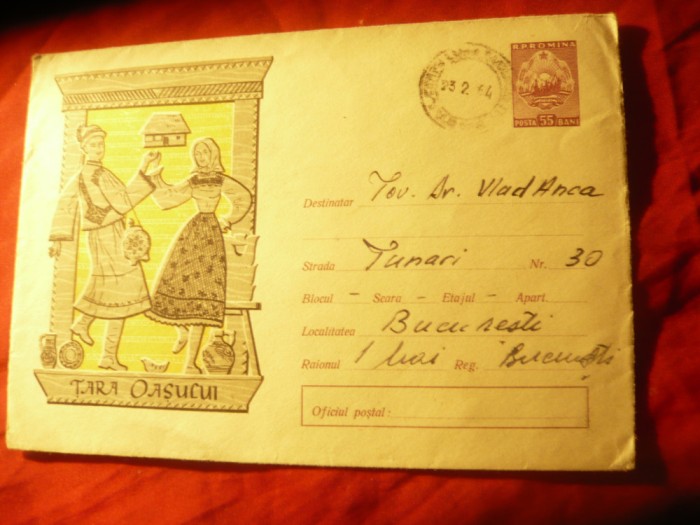 R.P.ROMINA
POSTA 55 BANI
23.2.64
Destinatar Tov. Dr. Vlad Anca
Strada Tunari Nr. 30
Blocul - Scara - Etajul - Apart.
Localitatea București
Raionul 1 Mai Reg. București
Oficiul poștal:
ȚARA OAȘULUI